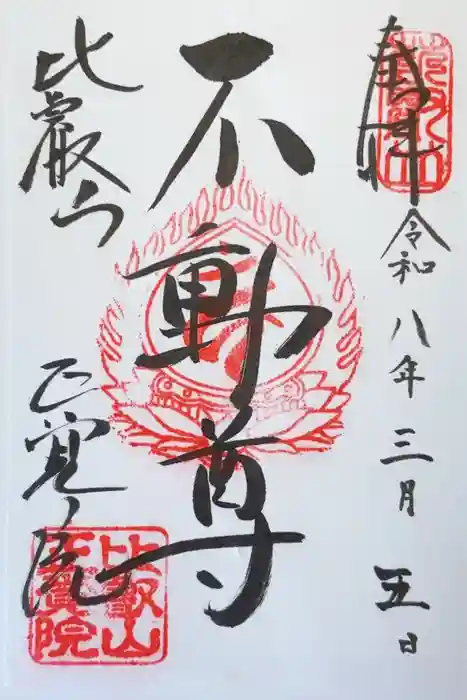 奉拝
令和八年三月五日
不動尊
比叡山
正覚院
比叡山
正覚院